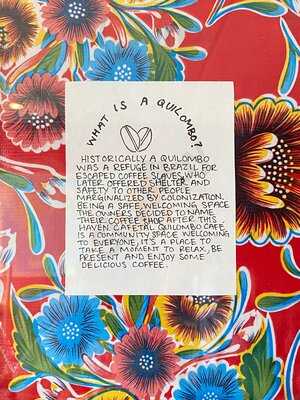 WHAT IS A QUILOMBO?
HISTORICALLY A QUILOMBO
WAS A REFUGE IN BRAZIL FOR
ESCAPED COFFEE SLAVES WHO
LATER OFFERED SHELTER AND
SAFETY TO OTHER PEOPLE
MARGINALIZED BY COLONIZATION.
BEING A SAFE, WELCOMING SPACE
THE OWNERS DECIDED TO NAME
THEIR COFFEE SHOP AFTER THIS
HAVEN. CAFETAL QUILOMBO CAFE
IS A COMMUNITY SPACE WELCOMING
TO EVERYONE, IT'S A PLACE TO
TAKE A MOMENT TO RELAX, BE
PRESENT AND ENJOY SOME
DELICIOUS COFFEE.